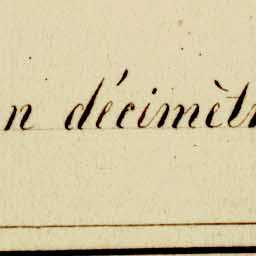 n décimèt